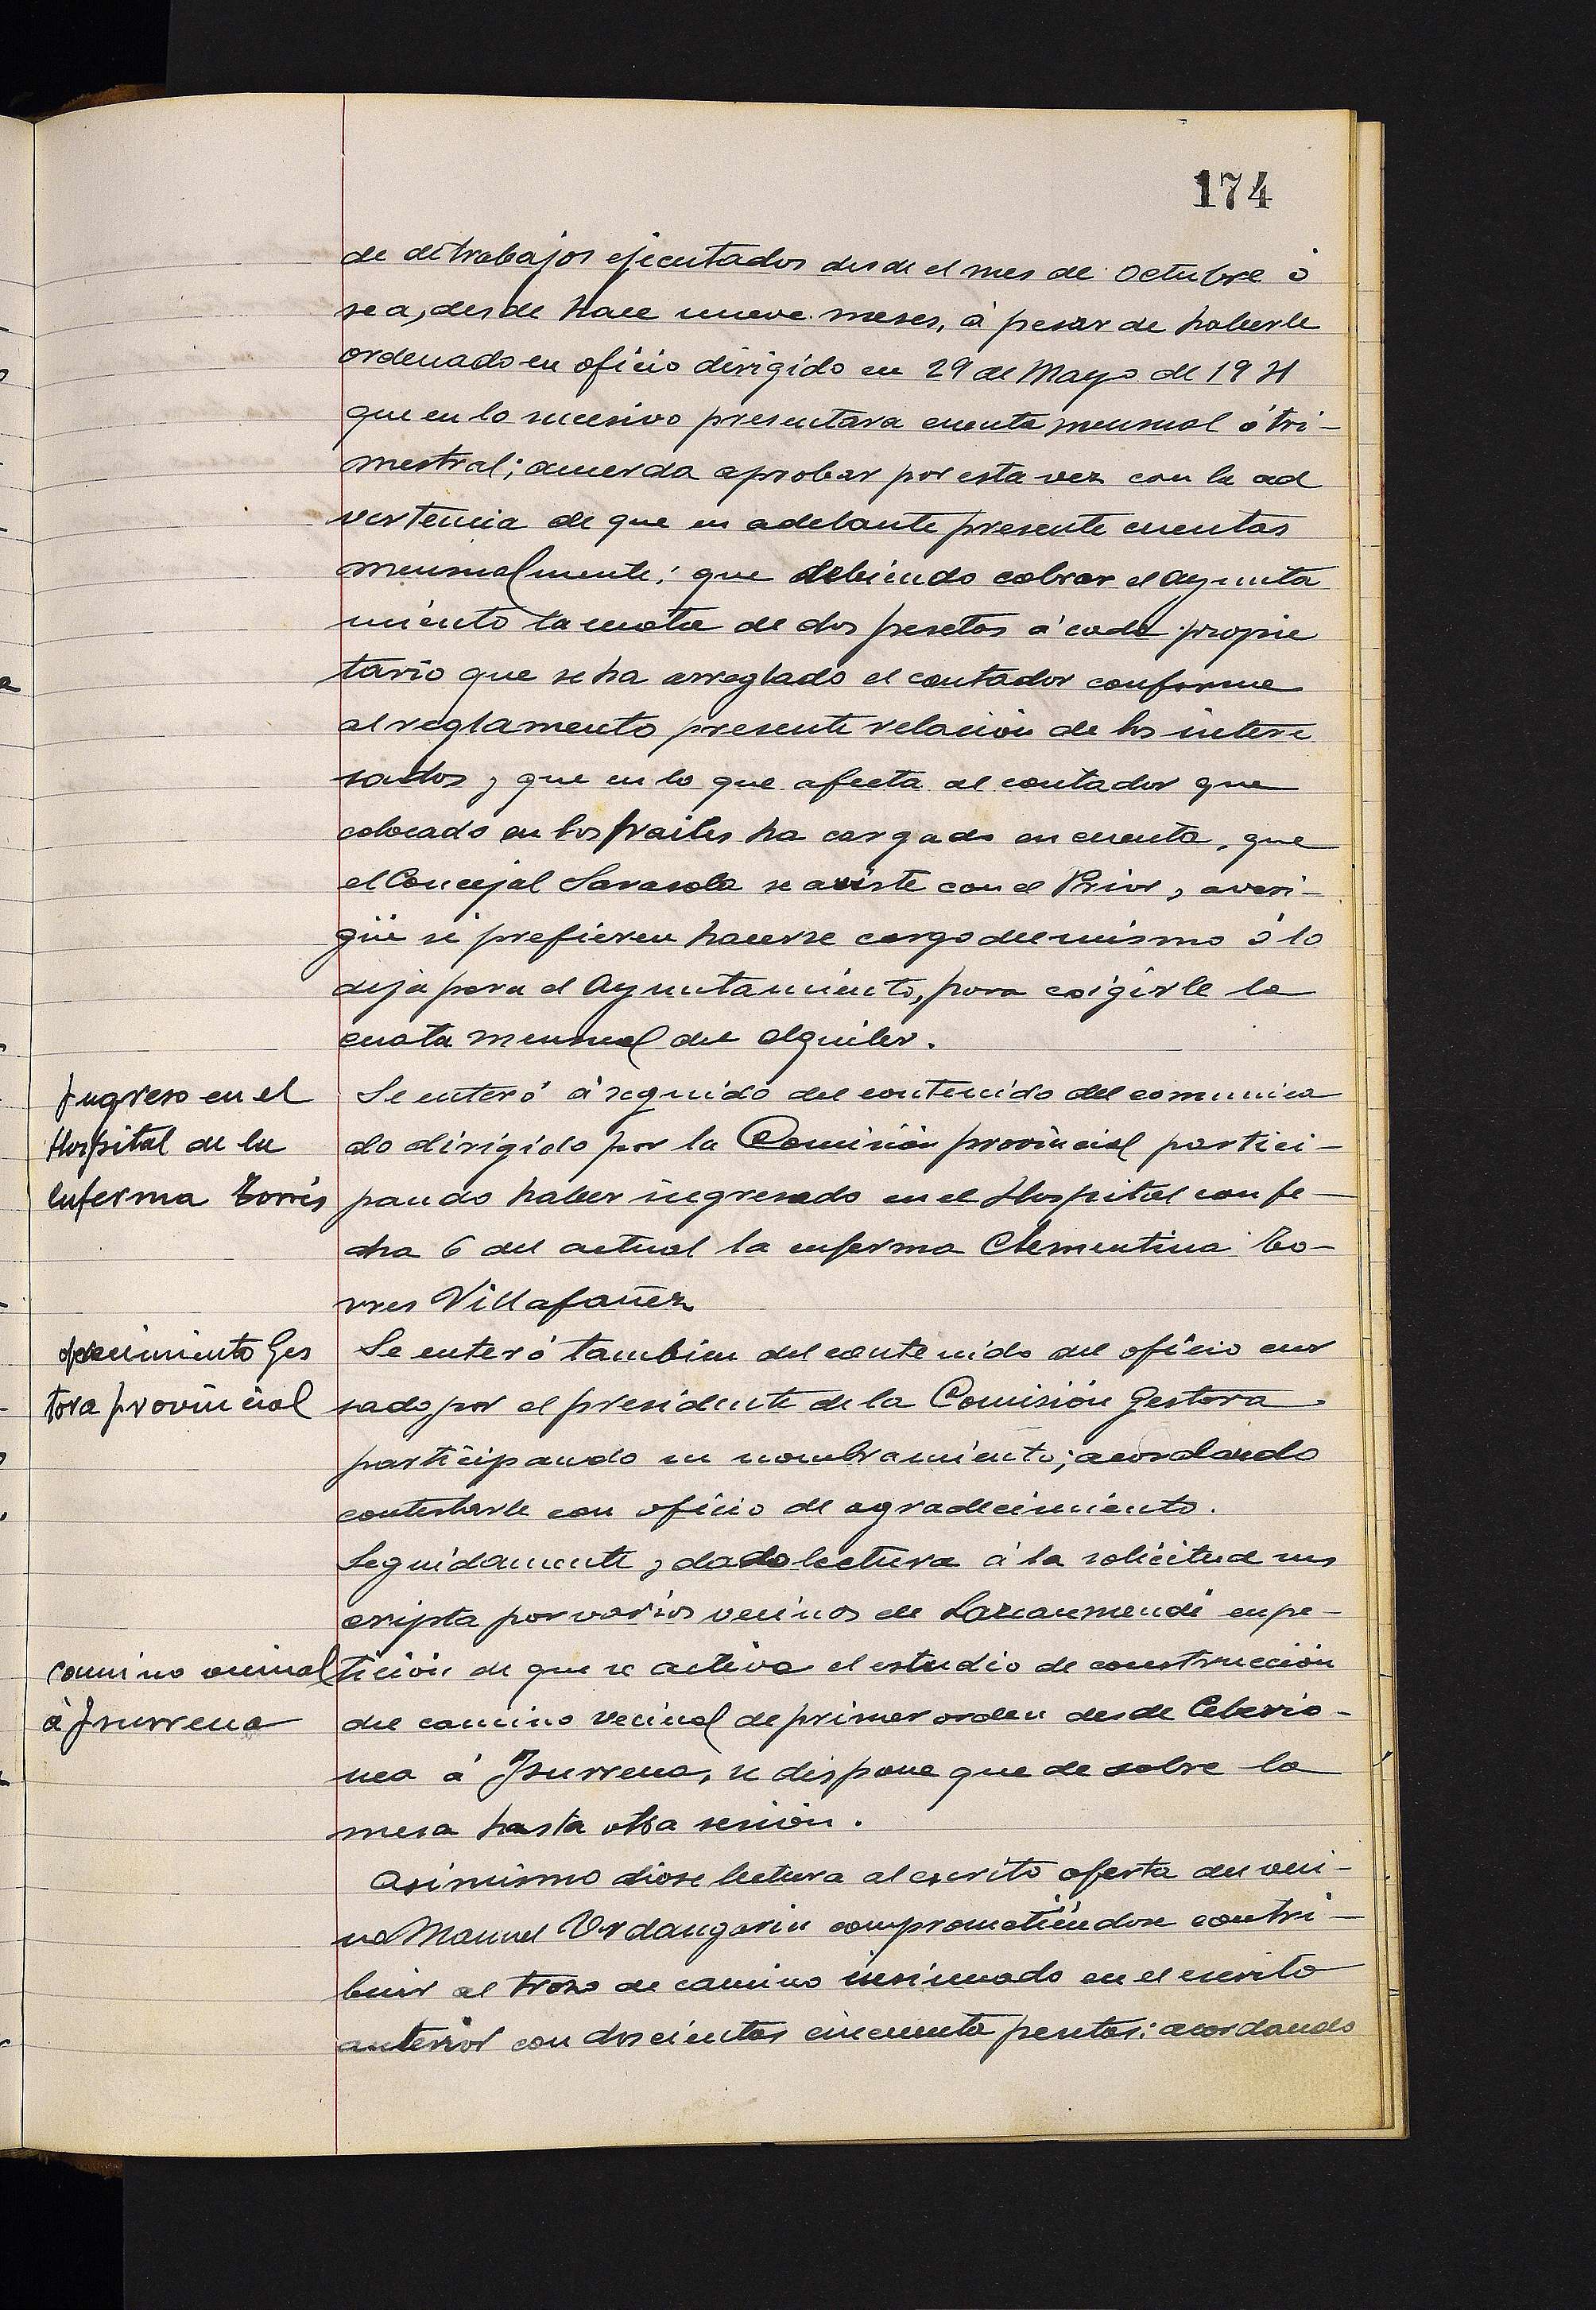 174
de de trabajos ejecutados desde el mes de Octubre ó
sea, desde hace nueve meses, á pesar de haberle
ordenado en oficio dirigido en 29 de Mayo de 1931
que en lo sucesivo presentara cuenta mensual ó tri-
mestral; acuerda aprobar por esta vez con la ad
vertencia de que en adelante presente cuentas
mensualmente: que debiendo cobrar el Ayunta
miento la cuota de dos pesetas á cada propie
tario que se ha arreglado el contador conforme
al reglamento presente relación de los intere
sados, y que en lo que afecta al contador que
colocado en los frailes ha cargado en cuenta, que
el Concejal Sarasola se aviste con el Prior, averi-
güe si prefieren hacerse cargo del mismo ó lo
deja para el Ayuntamiento, para exigirle la
cuota mensual del alquiler.
Ingreso en el
Hospital de la
enferma Torres
Se enteró á seguido del contenido del comunica
do dirigido por la Comisión provincial partici-
pando haber ingresado en el Hospital con fe-
cha 6 del actual la enferma Clementina To-
rres Villafañez
ofrecimiento Ges
tora provincial
Se enteró tambien del contenido del oficio cur
sado por el presidente de la Comisión Gestora
participando su nombramiento; acordando
contestarle con oficio de agradecimiento.
Seguidamente, dado lectura á la solicitud sus
cripta por varios vecinos de Lazcaumendi en pe-
camino vecinal
á Isurrena
tición de que se activa el estudio de construcción
del camino vecinal de primer orden desde Ceberio-
nea á Isurrena, se dispone quede sobre la
mesa hasta otra sesión.
Asimismo diose lectura al escrito oferta del veci-
no Manuel Urdangarin comprometiéndose contri-
buir al trozo de camino insinuado en el escrito
anterior con doscientas cincuenta pesetas: acordando